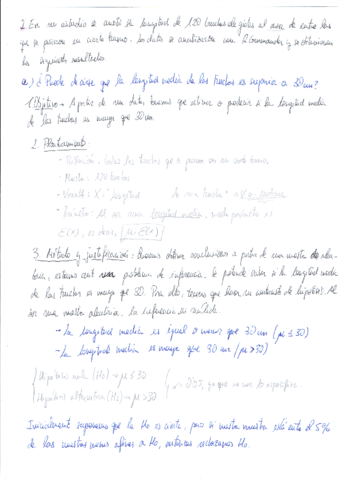 2. En un estudio se anotó la longitud de 120 truchas elegidas al azar de entre las
que se pescaron en cierto tramo. Los datos se analizaron con R Commander y se obtuvieron
los siguientes resultados
a) ¿Puede decirse que la longitud media de las truchas es superior a 30 cm?
1. Objetivo → A partir de los datos tenemos que si la longitud media
de las truchas es mayor que 30 cm.
2. Planteamiento:
- Población: todas las truchas que se pescan en un cierto tramo.
- Muestra: 120 truchas
- Variable: X: "longitud de una trucha"
- Parámetro: μ es una longitud media, cuyo parámetro es
E(X), es decir, μ = E(X)
3. Método y justificación: Queremos obtener conclusiones a partir de una muestra
estamos ante un problema de inferencia. Se pretende saber si la longitud media
de las truchas es mayor que 30. Para ello, tenemos que hacer un contraste de hipótesis. Al
ser una muestra aleatoria, la inferencia es
- La longitud media es igual o menor que 30 cm (μ ≤ 30)
- La longitud media es mayor que 30 cm (μ > 30)
Hipótesis nula (H₀) → μ ≤ 30
Hipótesis alternativa (H₁) → μ > 30
ya que no se especifica.
Inicialmente suponemos que la H₀ es cierta, pero si nuestra muestra está entre el 5%
de las muestras menos afines a H₀, entonces rechazamos H₀.